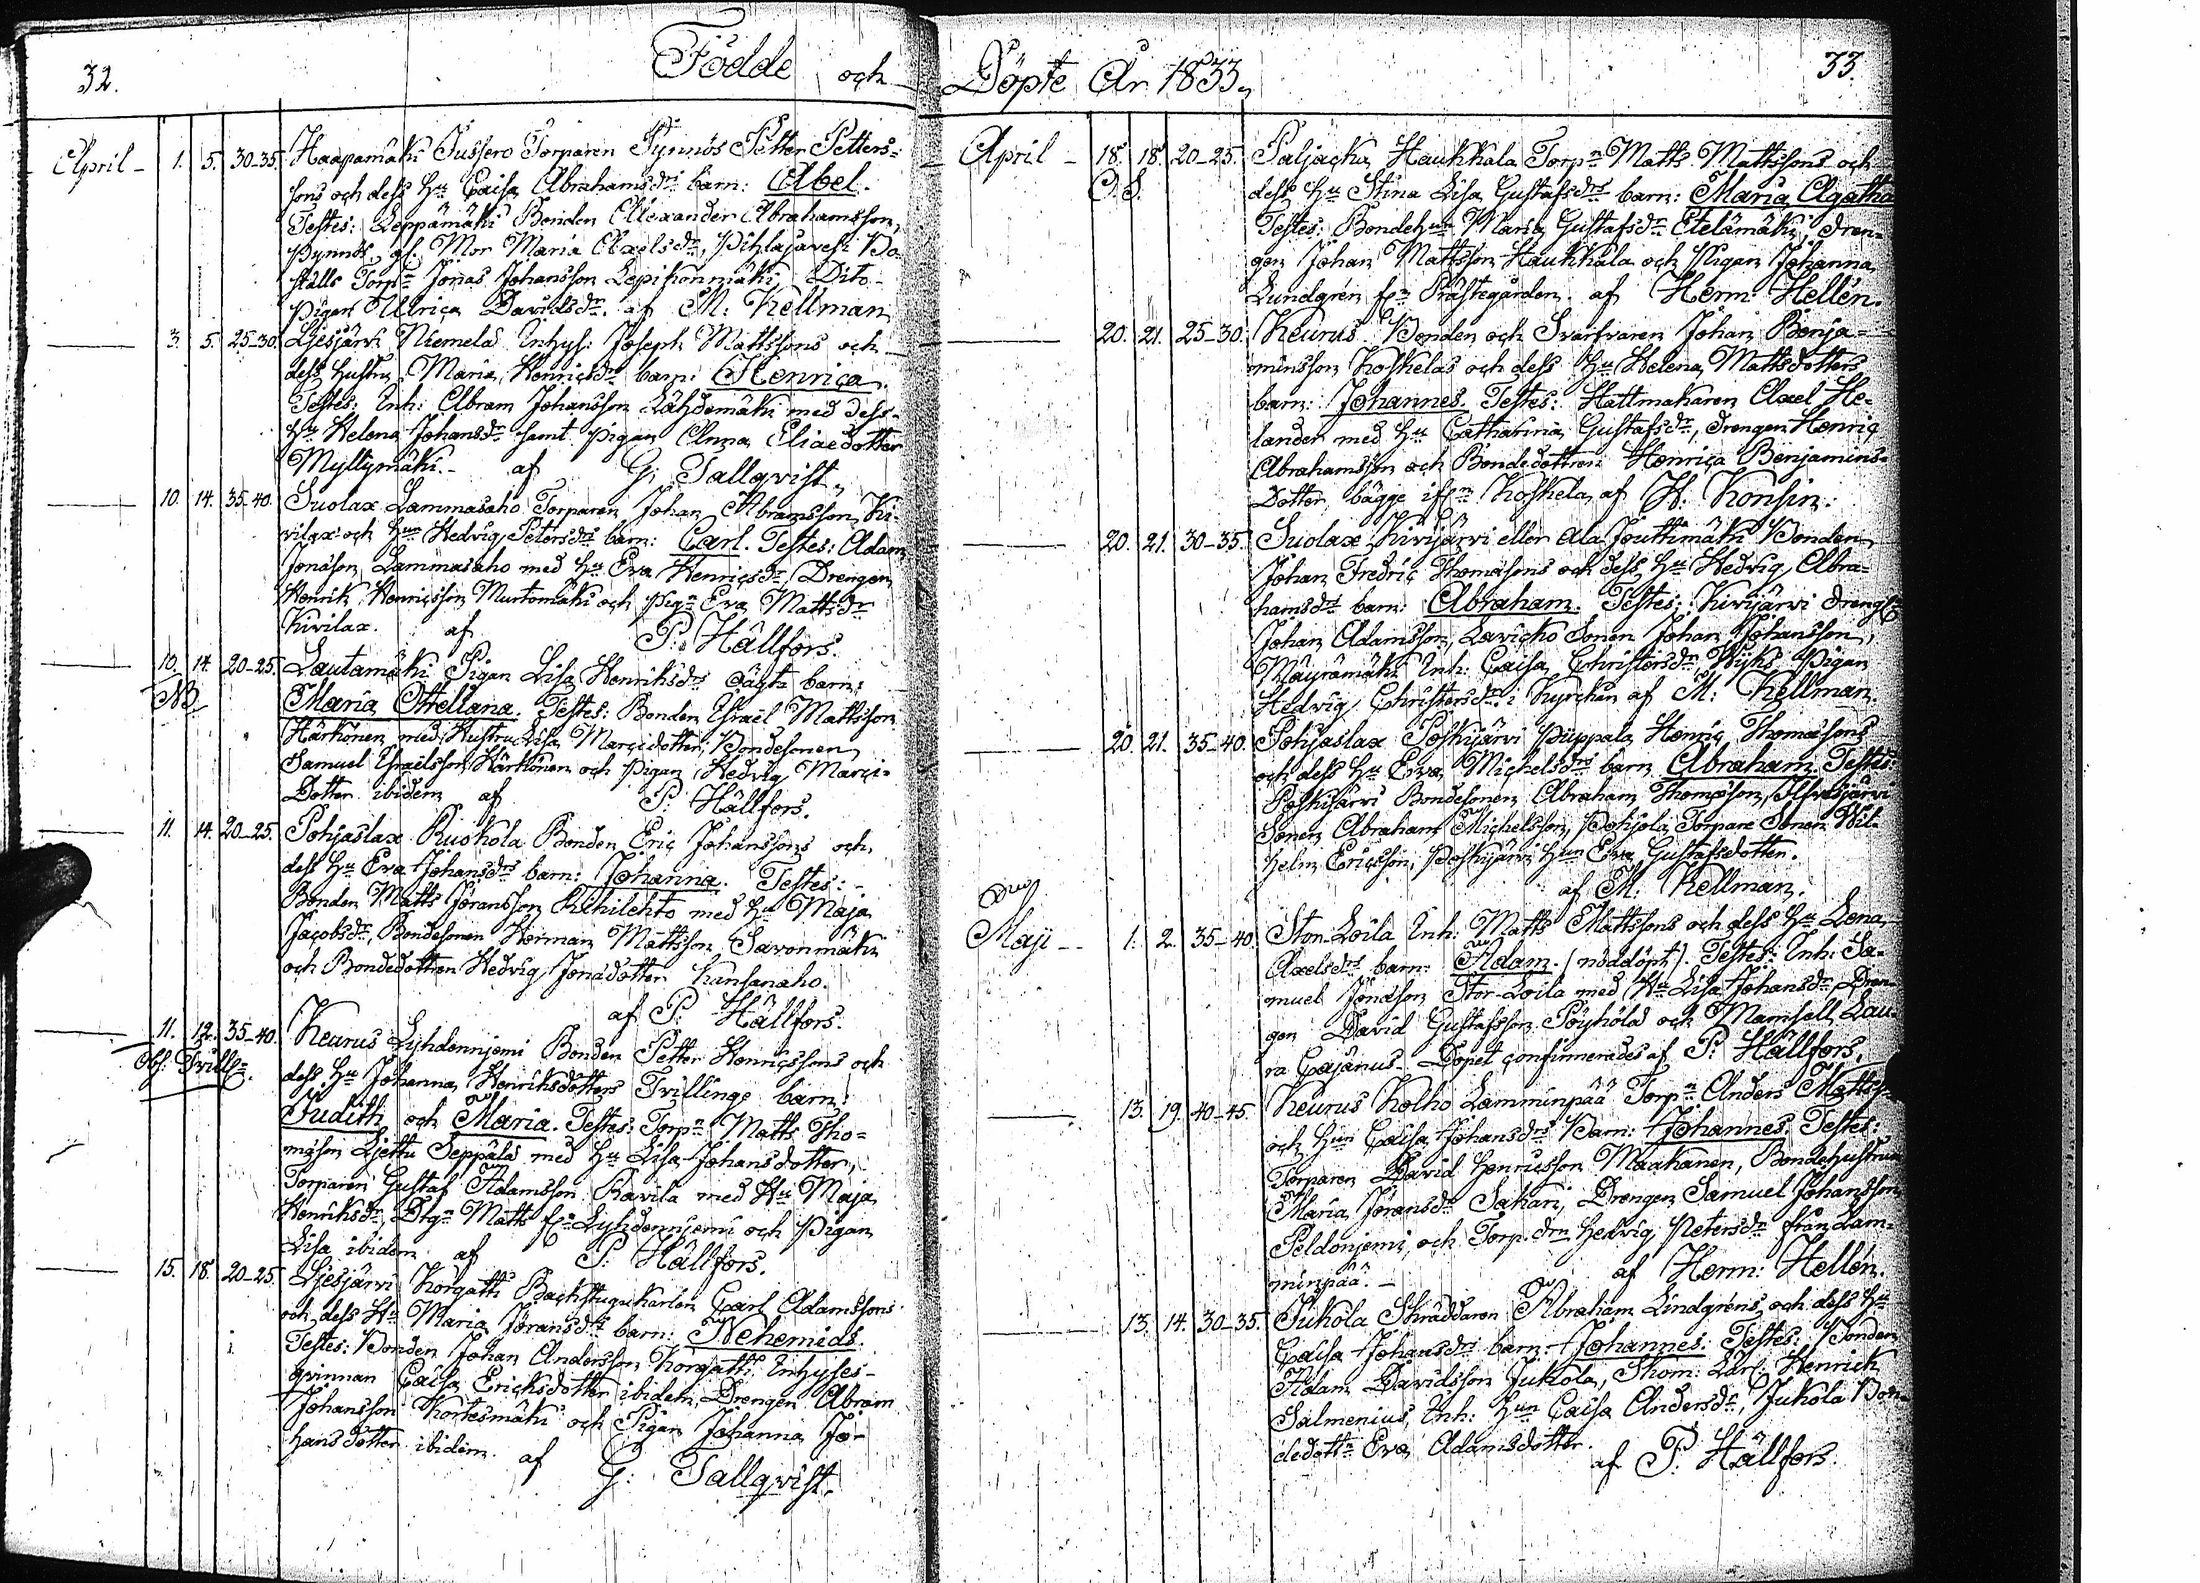 32.
Födde och
April - 1. 5. 30-35. Haapamäki Jussero Torparen Pynnös Petter Petters-
sons och dess Hu Caisa Abrahamsdrs barn: Abel.
Testes: Leppämäki Bonden Alexander Abrahamsson,
Pynnös gl. Mor Maria Axelsdr, Pihlajavesi Bo-
ställs Torpn Jonas Johansson Lepikonmäki Dito
Pigan Ulrica Davidsdr. af M: Kellman
3. 5. 25-30. Liesjärvi Niemelä Inhys: Joseph Mattssons och
dess hustru Maria Henricsdrs barn: Henrica.
Testes: Inh: Abram Johansson Lähdemäki med dess
Hu Helena Johansdr samt Pigan Anna Eliaedotter
Myllymäki. - af G: Tallqvist.
10. 14. 35-40. Suolax Lammasaho Torparen Johan Abramsson Ki-
vilax och Hun Hedvig Petersdrs barn: Carl. Testes: Adam
Jonasson Lammasaho med Hu Eva Henricsdr, Drengen
Henrik Henricsson Murtomäki och Pign Eva Mattsdr
Kivilax. af P: Hällfors.
10. 14. 20-25. Lautamäki Pigan Lisa Henriksdrs oägta barn:
NB Maria Stellana. Testes: Bonden Israël Mattsson
Härkönen med Hustru Lisa Marcidotter, Bondesonen
Samuel Israelsson Härkönen och Pigan Hedvig Marci-
Dotter ibidem af P: Hällfors.
11. 14. 20-25. Pohjaslax Ruokola Bonden Eric Johanssons och
dess Hu Eva Johansdrs barn: Johanna. Testes: -
Bonden Matts Jöransson Riihilehto med Hu Maja
Jacobsdr, Bondesonen Herman Mattsson Savonmäki
och Bondedottren Hedvig Jonadotter Kunsanaho.
af P: Hällfors.
11. 12. 35-40. Keurus Lyhdenniemi Bonden Petter Henricssons och
Obs: Trillr. dess Hu Johanna Henriksdotters Trillinge barn:
Judith och Maria. Testes: Torpn Matts Tho-
masson Liettu Seppälä med Hu Lisa Johansdotter,
Torparen Gustaf Adamsson Ravila med Hu Maja
Henriksdr, Drgn Matts fr. Lyhdenniemi och Pigan
Lisa ibidem af P: Hällfors.
15. 18. 20-25. Liesjärvi Korgatti Backstugukarlen Carl Adamssons
och dess Hu Maria Jöransdrs barn: Nehemias.
Testes: Bonden Johan Andersson Korgatti Inhyses-
qvinnan Caisa Ericksdotter ibidem, Drengen Abram
Johansson Kortesmäki och Pigan Johanna Jo-
hansdotter ibidem. af G: Tallqvist.
Döpte År 1833.
33.
April - 18. 18. 20-25. Paljacka Haukkala Torpn Matts Mattssons och
dess Hu Stina Lisa Gustafsdrs barn: Maria Agatha
Testes: Bondehun Maria Gustafsdr Etelämäki, Dren-
gen Johan Mattsson Haukkala och Pigan Johanna
Lundgrén frn Prästegården. af Herm: Hellén.
20. 21. 25-30. Keurus Bonden och Svarfvaren Johan Benja-
minsson Koskelas och dess Hu Helena Mattsdotters
barn: Johannes. Testes: Hattmakaren Axel He-
lander med Hu Catharina Gustafsdr, Drengen Henric
Abrahamsson och Bondedottren Henrica Benjamins-
Dotter bägge ifrn Koskela af H. Konsin.
20. 21. 30-35. Suolax Kivijärvi eller Ala Jouttimäki Bonden
Johan Fredric Thomasons och dess Hu Hedvig Abra-
hamsdrs barn: Abraham. Testes: Kivijärvi Dreng
Johan Adamsson, Lavicko Sonen Johan Johansson,
Mäyrämäki Inh: Caisa Christersdr, Wyks Pigan
Hedvig Christersdr i Kyrckan af M: Kellman.
20. 21. 35-40. Pohjaslax Poskijärvi Puppala Henric Thomasons
och dess Hu Eva Michelsdrs barn Abraham Testes:
Poskijärvi Bondesonen Abraham Thomasson,
Sonen Abraham Michelsson, Pohjola Torpare Sonen Wil-
helm Ericsson, Poskijärvi Hun Eva Gustafsdotter.
af M. Kellman.
Maji - - 1. 2. 35-40. Stor-Loila Inh: Matts Mattssons och dess Hu Lena
Axelsdrs barn: Adam. (nöddöpt). Testes: Inh: Sa-
muel Jonasson Stor-Loila med Hu Lisa Johansdr Dren-
gen David Gustafsson Pöyhölä och Mamsell Lau-
ra Cajanus. Dopet confirmerades af P: Hällfors.
13. 19. 40-45. Keurus Kolho Lamminpää Torpn Anders Mattss
och Hun Caisa Johansdrs Barn: Johannes. Testes:
Torparen David Henricsson Maahanen, Bondehustrun
Maria Jöransdr Sahari, Drengen Samuel Johansson
Peldoniemi, och Torp.drn Hedvig Petersdr från Lam-
minpää. - af Herm: Hellén.
13. 14. 30-35. Jukola Skräddaren Abraham Lindgréns och dess Hu
Caisa Johansdrs barn Johannes. Testes: Bonden
Adam Davidsson Jukola, Skom: Lärl: Henrick
Salmenius, Inh: Hun Caisa Andersdr, Jukola Bon-
dedottn Eva Adamsdotter. af P: Hällfors.